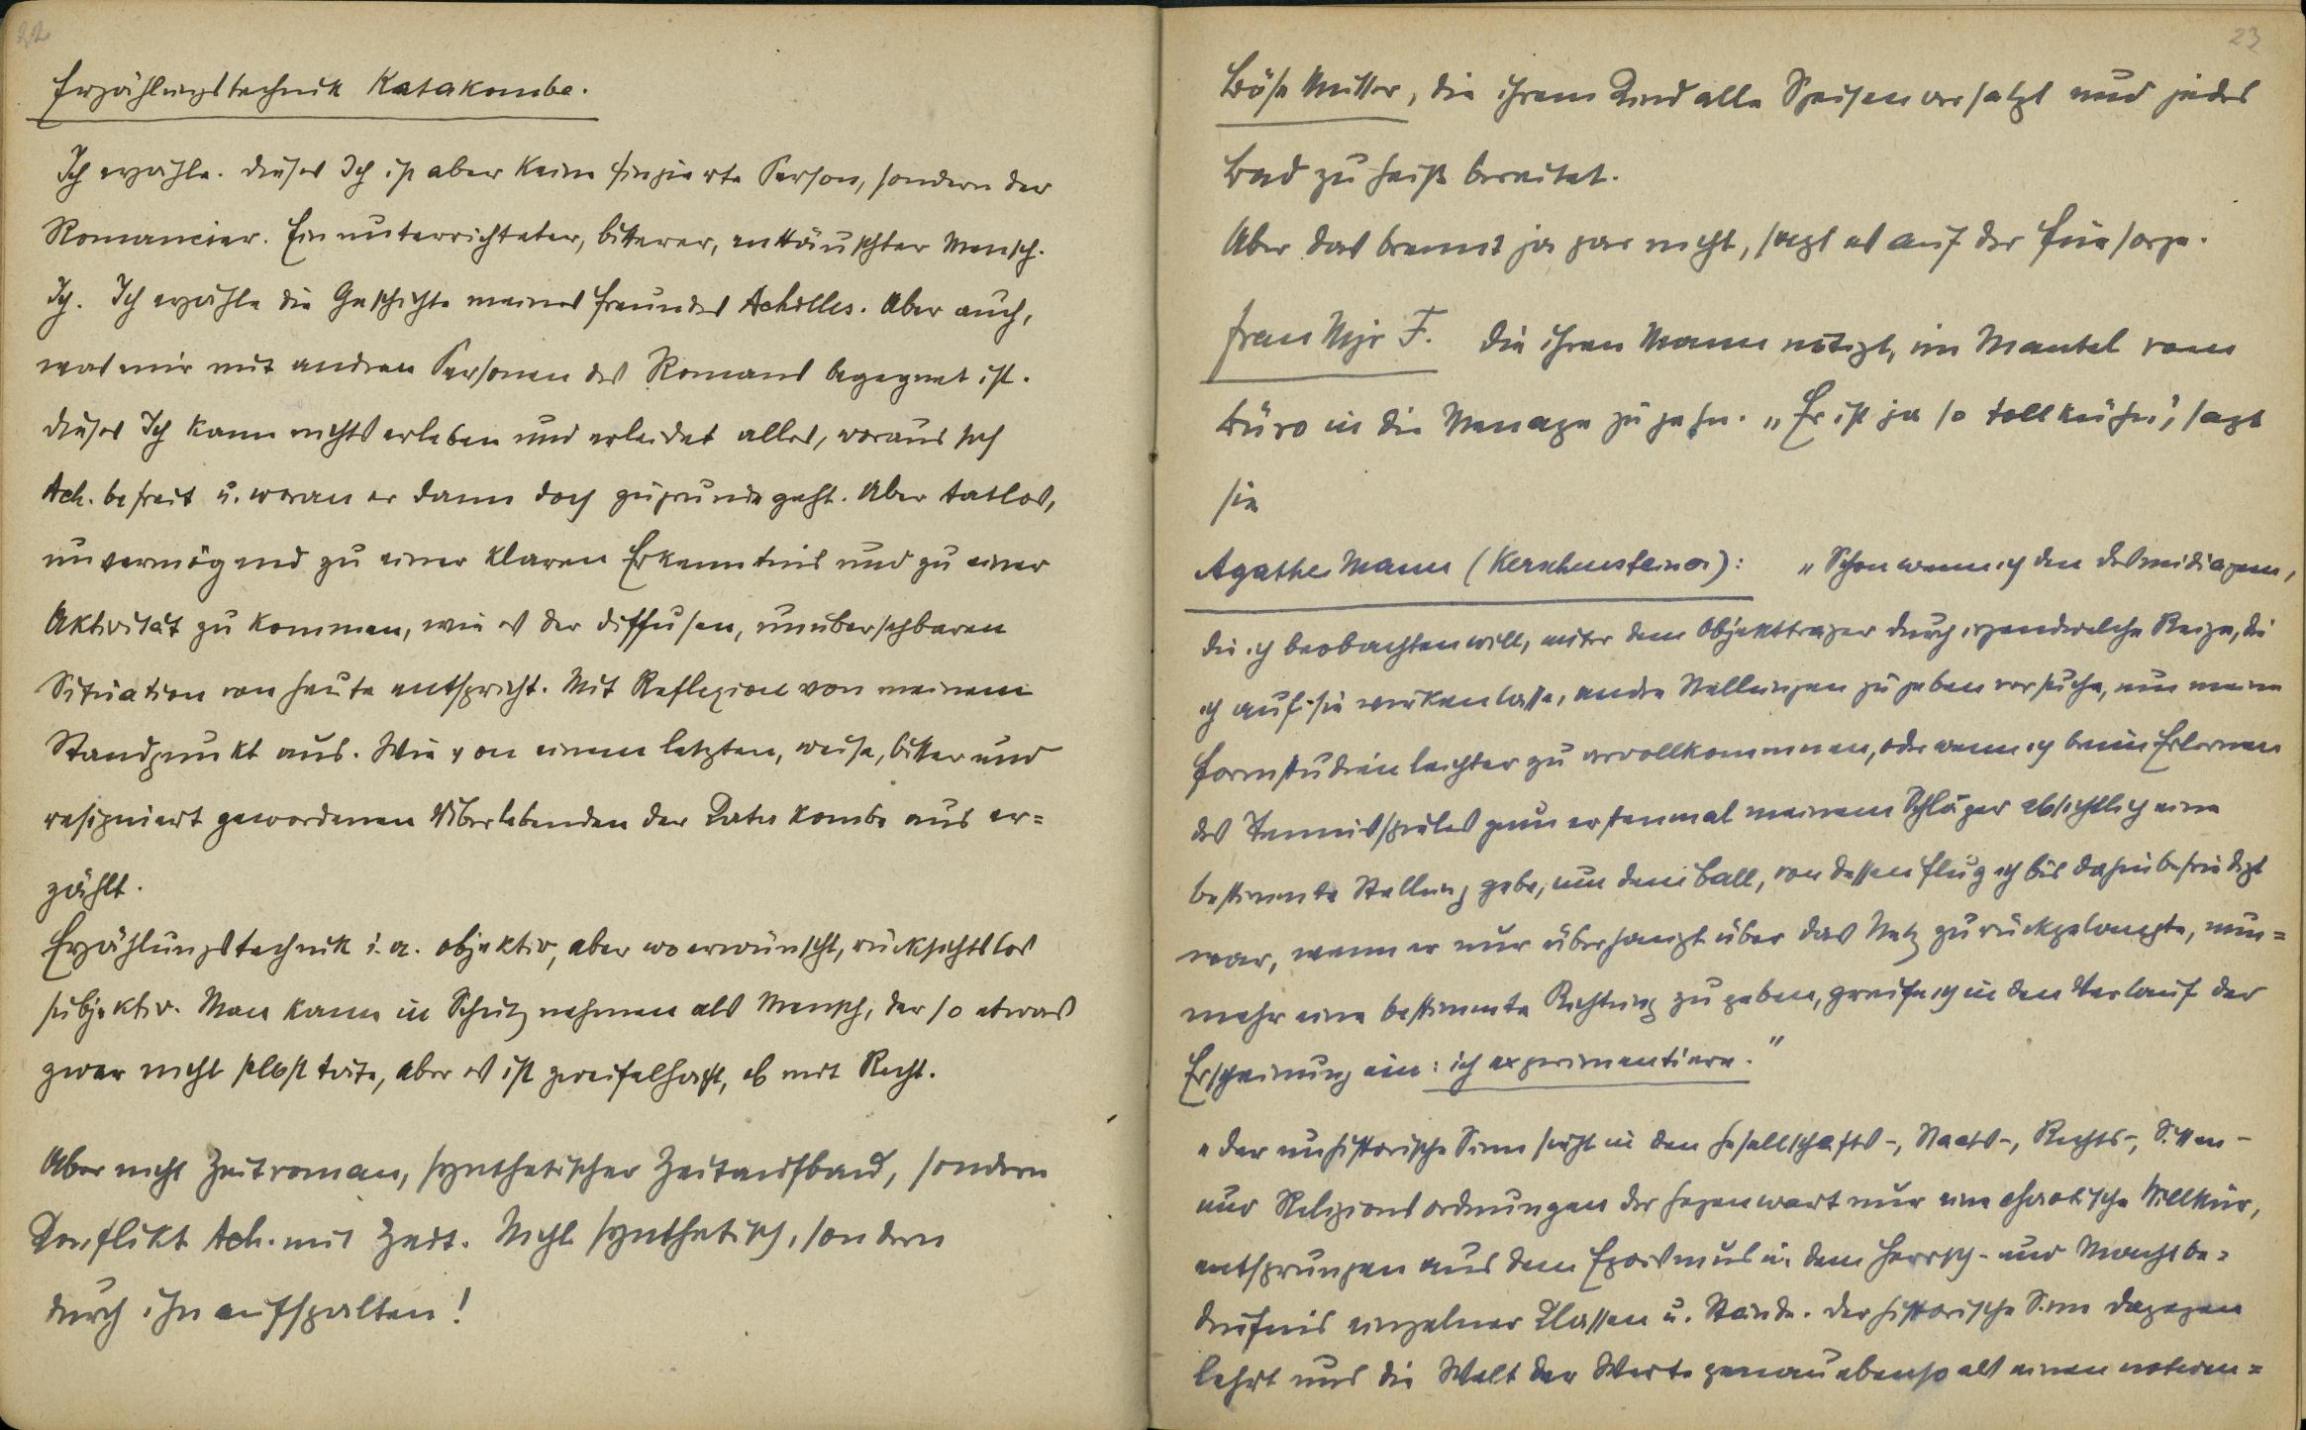 22
Erzählungstechnik Katakombe.
Ich erzähle. Dieses Ich ist aber keine fingierte Person, sondern der
Romancier. Ein unterrichteter, bitterer, enttäuschter Mensch.
Ich. Ich erzähle die Geschichte meines Freundes Achilles. Aber auch,
was mir mit andren Personen des Romans begegnet ist.
Dieses Ich kann nichts erleben und erleidet alles, woraus sich
Ach. befreit u. woran er dann doch zugrunde geht. Aber tatlos,
unvermögend zu einer klaren Erkenntnis und zu einer
Aktivität zu kommen, wie es der diffusen, unübersehbaren
Situation von heute entspricht. Mit Reflexion von meinem
Standpunkt aus. Wie von einem letzten, weise, bitter und
resigniert gewordenen Überlebenden der Katakombe aus er=
zählt.
Erzählungstechnik i. a. objektiv, aber wo erwünscht, rücksichtslos
subjektiv. Man kann in Schutz nehmen als Mensch, der so etwas
zwar nicht selbst täte, aber es ist zweifelhaft, ob mit Recht.
Aber nicht Zeitroman, synthetischer Zeitaufbau, sondern
Konflikt Ach. mit Zeit. Nicht synthetisch, sondern
durch ihn aufspalten!
23
Böse Mutter, die ihrem Kind alle Speisen versalzt und jedes
Bad zu heiß bereitet.
Aber das brennt ja gar nicht, sagt es auf der Fürsorge.
Frau Mjr F. die ihren Mann nötigt, im Mantel vom
Büro in die Menage zu gehn. „Er ist ja so tollkühn", sagt
sie
Agathes Mann (Kerschensteiner): „Schon wenn ich den Desmidiazeen,
die ich beobachten will, unter dem Objektträger durch irgendwelche Reize, die
ich auf sie wirken lasse, andre Stellungen zu geben versuche, um meine
Formstudien leichter zu vervollkommnen, oder wenn ich beim Erlernen
des Tennisspieles zum erstenmal meinem Schläger absichtlich eine
bestimmte Stellung gebe, um dem Ball, von dessen Flug ich bis dahin befriedigt
war, wenn er nur überhaupt über das Netz zurückgelangte, nun=
mehr eine bestimmte Richtung zu geben, greife ich in den Verlauf der
Erscheinung ein: ich experimentiere."
„Der unhistorische Sinn sieht in den Gesellschafts-, Staats-, Rechts-, Sitten-
und Religionsordnungen der Gegenwart nur eine chaotische Willkür,
entsprungen aus dem Egoismus u. dem Herrsch- und Machtbe=
dürfnis einzelner Klassen u. Stände. Der historische Sinn dagegen
lehrt uns die Welt der Werte genau ebenso als einen notwen=